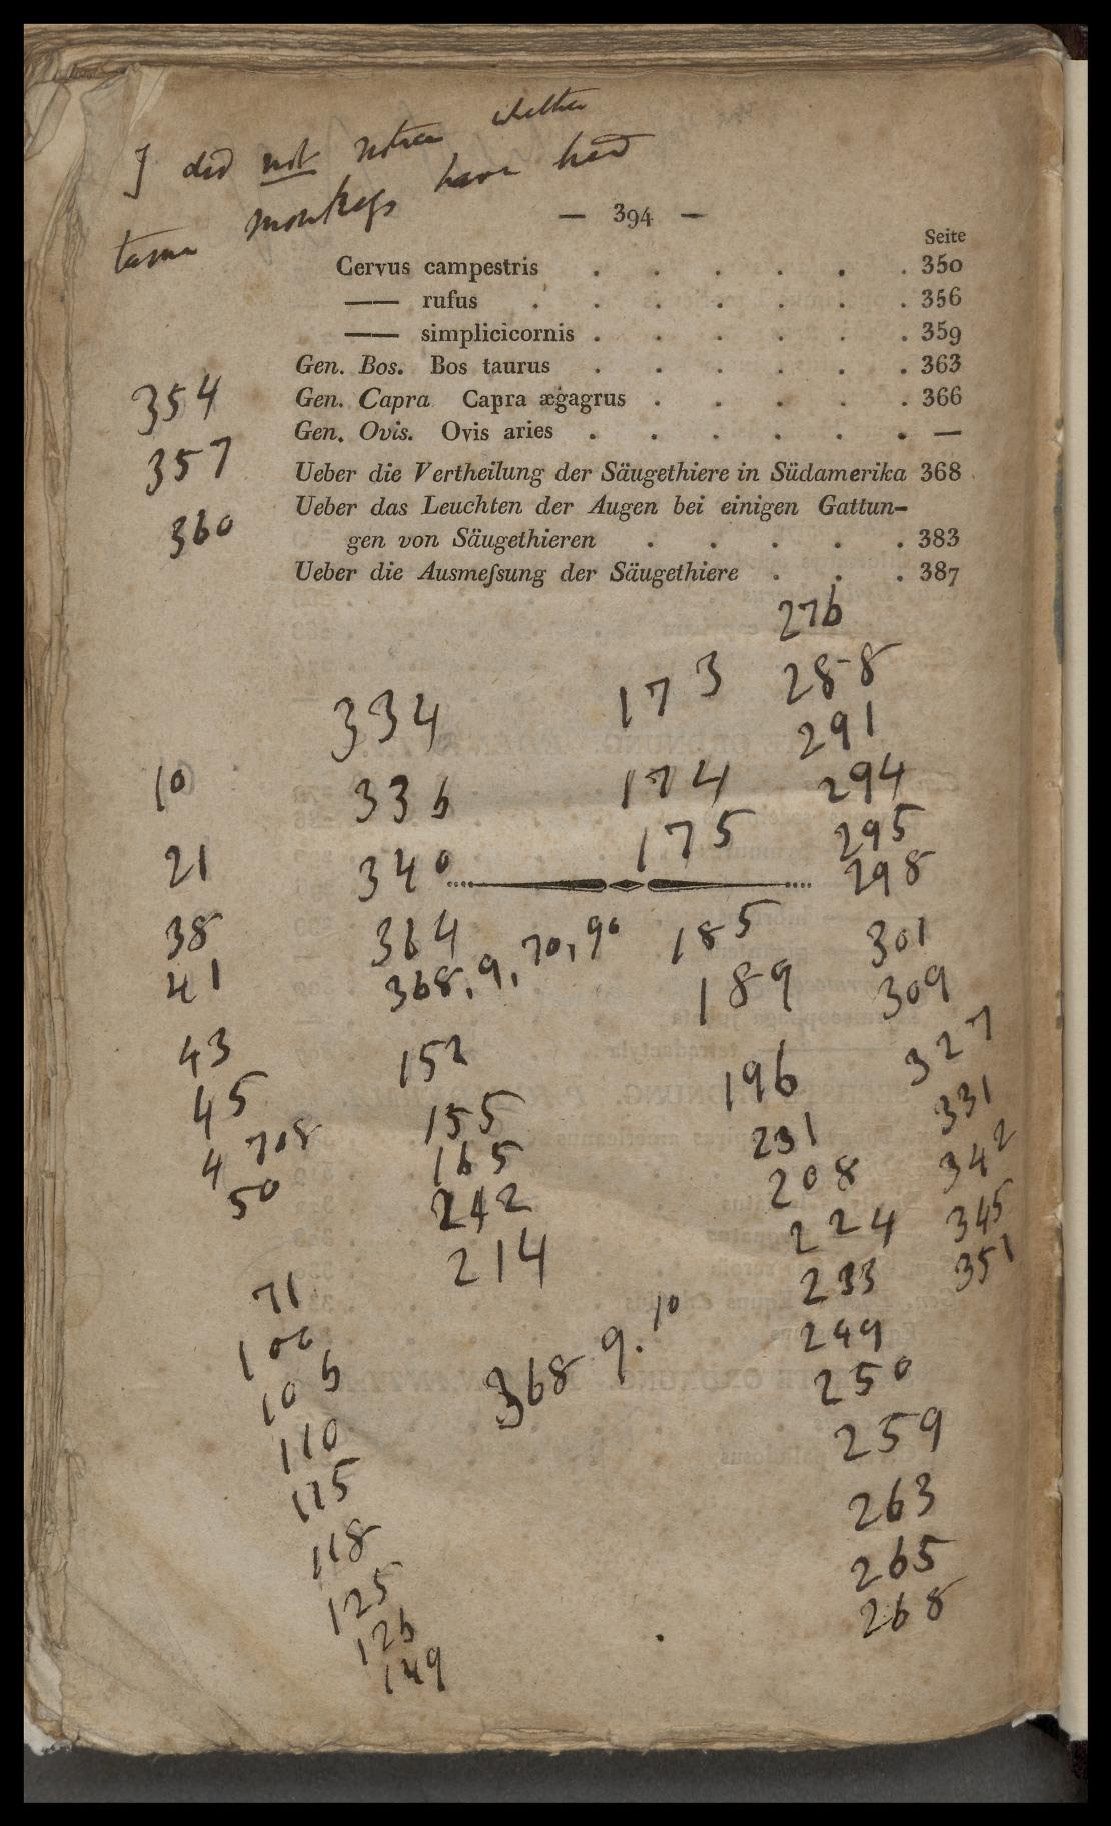 I did not notice whether
tame monkeys have had
— 394 —
Seite
Cervus campestris . . . . . . 350
—— rufus . . . . . . 356
—— simplicicornis . . . . . . 359
Gen. Bos. Bos taurus . . . . . . 363
Gen. Capra Capra ægagrus . . . . . 366
Gen. Ovis. Ovis aries . . . . . . —
Ueber die Vertheilung der Säugethiere in Südamerika 368
Ueber das Leuchten der Augen bei einigen Gattun-
gen von Säugethieren . . . . . 383
Ueber die Ausmeſsung der Säugethiere . . . 387
354
357
360
10
21
38
41
43
45
4 708
50
71
106
110
115
118
125
126
149
334
336
340
364
368, 9, 70, 90
152
155
165
242
214
368 9. 10
173
174
175
185
189
196
231
208
224
233
249
250
259
263
265
268
276
288
291
294
295
298
301
309
327
331
342
345
351